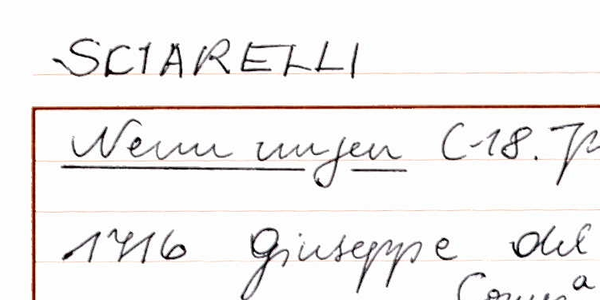 SCIARELLI
Nennungen (-18. J
1716 Giuseppe del
Comp.a